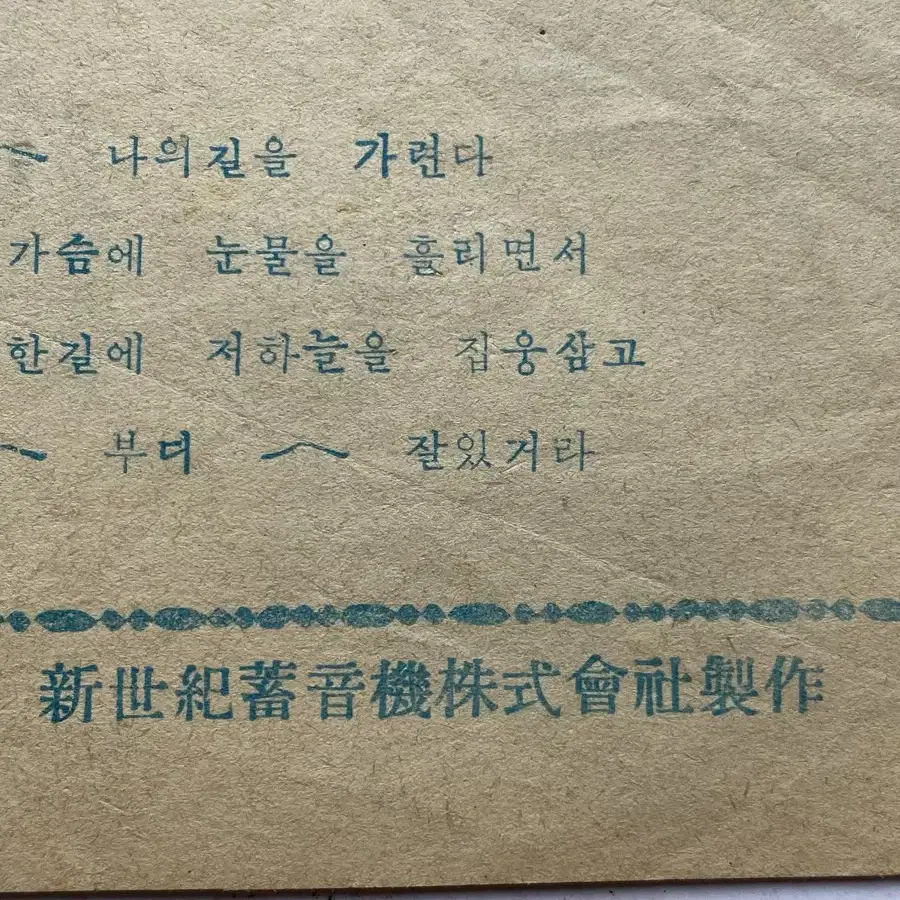 〱 나의길을 가련다
가슴에 눈물을 흘리면서
한길에 저하늘을 집웅삼고
〱 부디 〱 잘있거라
新世紀蓄音機株式會社製作